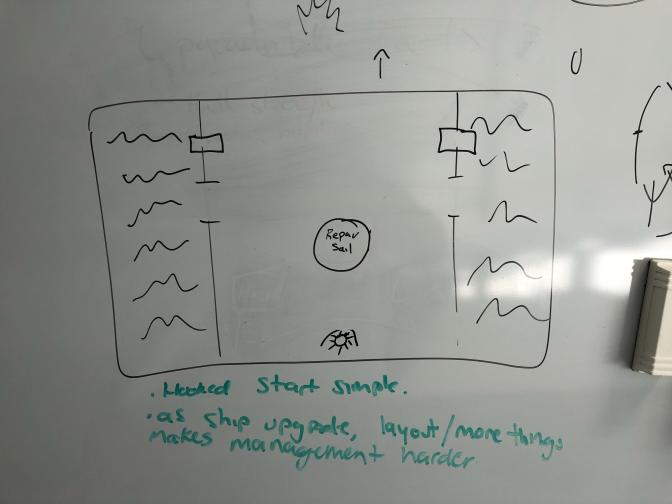 Repair
Sail
· start simple.
· as ship upgrade, layout/more things
makes management harder